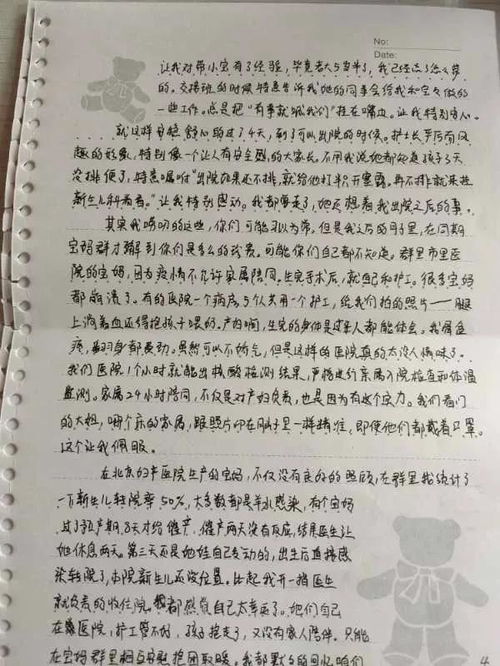 No:
Date:
让我对带小宝有了经验,毕竟老大与当年了,我已经忘了怎么带
的。交接班的时候特意告诉我她的同事会给我和宝今做的
一些工作。总是把"有事就喊我们"挂在嘴边。让我特别安心。
就这样安稳舒心的过了4天,到了可以出院的时候。护士长严厉而风
趣的形象,特别像一个让人有安全感的大家长。不用我说她都知道孩子3天
没排便了,特意嘱咐"出院如果还不排,就给他打半开塞露。再不排就来挂
新生儿科看看。"让我特别感动。我都要走了,她还想着我出院之后的事。
其实我唠叨的这些,你们可能习以为常,但是我之后的月子里,在同期
宝妈群才了解到你们是多么的珍贵。可能你们自己都不知道。群里市里医
院的宝妈,因为疫情不允许家属陪同。生完手术后,就自己和护工。很多宝妈
都崩溃了。有的医院一个病房,5个人共用一个护工,给我们拍的照片——腿
上淌着血还得抱孩子喂奶。产妇啊,生完的身体是过来人都能体会。我属鱼
疼,翻身都费劲。虽然可以不娇气,但是这样的医院真的太没人情味了。
我们医院1个小时就能出核酸检测结果,严格进行亲属入院检查和体温
监测。家属24小时陪同,不仅是对产妇负责,也是因为有这个实力。我们看门
的大姐,哪个床的家属,跟照片印在脑子里一样精准,即使他们都戴着口罩。
这个让我佩服。
在北京妇产医院生产的宝妈,不仅没有良好的照顾,在群里我统计了
一下新生儿转院率50%,大多数都是羊水感染,有个宝妈
过了预产期8天才给催产。催产两天没有反应,结果医生让
她休息两天。第三天还是她娃自己发动的,出生后直接感
染转院了,本院新生儿还没位置。比起我开一指医生
就负责的收住院。我都感觉自己太幸运了。她们自己
在医院,护工管不好,孩子抱走了,又没有家人陪伴。只能
在宝妈群里相互安慰抱团取暖。我都默默的回忆咱们